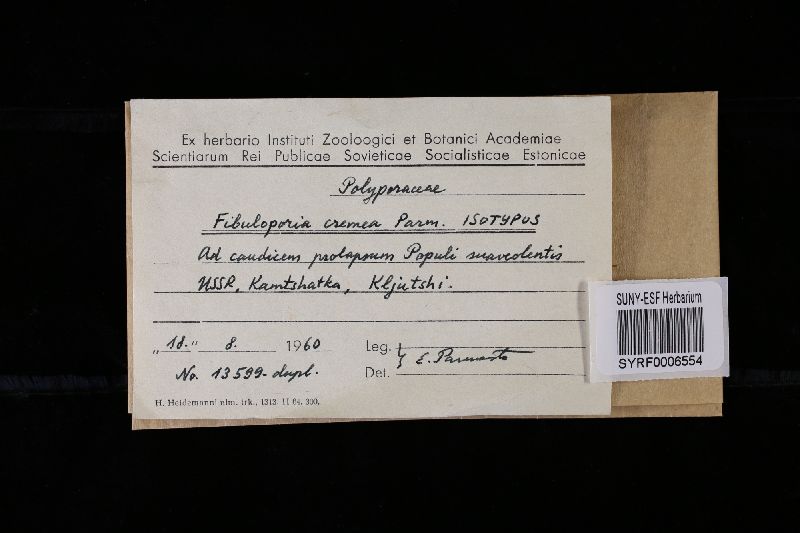 Ex herbario Instituti Zooloogici et Botanici Academiae
Scientiarum Rei Publicae Sovieticae Socialisticae Estonicae
Polyporaceae
Fibuloporia cremea Parm. ISOTYPUS
Ad caudicem prolapsum Populi suaveolentis
USSR, Kamtshatka, Kljutshi.
"18." 8. 1960
Leg. } E. Parmasto
Det.
No. 13599-dupl.
H. Heidemanni nim. trk., 1313. II 64. 300.
SUNY-ESF Herbarium
SYRF0006554